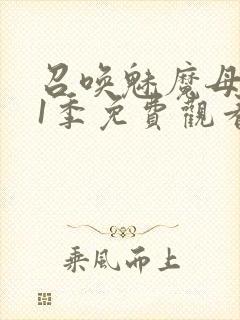 召唤魅魔母
1季免費觀看
乘风而上